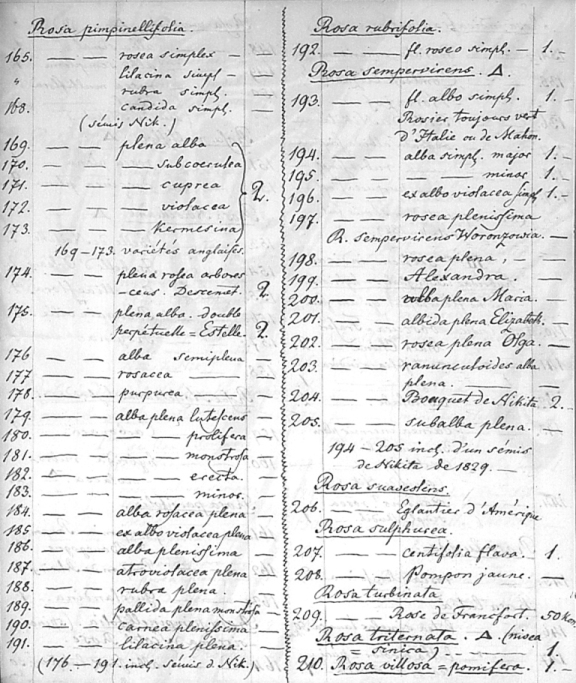 Rosa pimpinellifolia.
165. — — rosea simplex —
" — — lilacina simpl —
— — rubra simpl. —
168. — — candida simpl.
(sémis Nik.)
169. — — plena alba
170. — — — subcoerulea
171. — — — cuprea
172. — — — violacea
173. — — — Kermesina
2.
169–173. variétés anglaises.
174. — — plena rosea arbores
-cens. Descemet. 2
175. — — plena alba. double
perpétuelle = Estelle. 2.
176 — — alba semiplena —
177 — — rosacea — —
178. — — purpurea. — —
179. — — alba plena lutescens —
180. — — — prolifera —
181. — — — monstrosa —
182. — — — erecta. —
183. — — — minor. —
184. — — alba rosacea plena —
185 — — ex albo violacea plena —
186. — — alba plenissima —
187. — — atroviolacea plena —
188. — — rubra plena. —
189. — — pallida plena monstrosa —
190. — — carnea plenissima —
191. — — lilacina plena. —
(176–191. incl. Sémis d. Nik.)
Rosa rubrifolia.
192. — — fl. roseo simpl. — 1.—
Rosa sempervirens. Δ.
193. — — fl. albo simpl. 1.—
Rosier toujours vert
d'Italie ou de Mahon.
194. — — alba simpl. major 1.—
195. — — — minor 1.—
196. — — ex albo violacea simpl 1.—
197. — — rosea plenissima
R. sempervirens Woronzowia. —
198. — — rosea plena, — —
199. — — Alexandra. — —
200. — — alba plena Maria. —
201. — — albida plena Elizabeth. —
202. — — rosea plena Olga. —
203. — — ranunculoides alba
plena. — —
204. — — Bouquet de Nikita. 2.—
205. — — subalba plena. —
194–205 incl. d'un sémis
de Nikita de 1829. —
Rosa suaveolens.
206. — — Eglantier d'Amérique
Rosa sulphurea.
207. — — centifolia flava. — 1.
208. — — Pompon jaune. —
Rosa turbinata
209. — — Rose de Francfort. 50 kop.
Rosa triternata. Δ. (nivea
= sinica) — — 1.
210. Rosa villosa = pomifera. 1.—